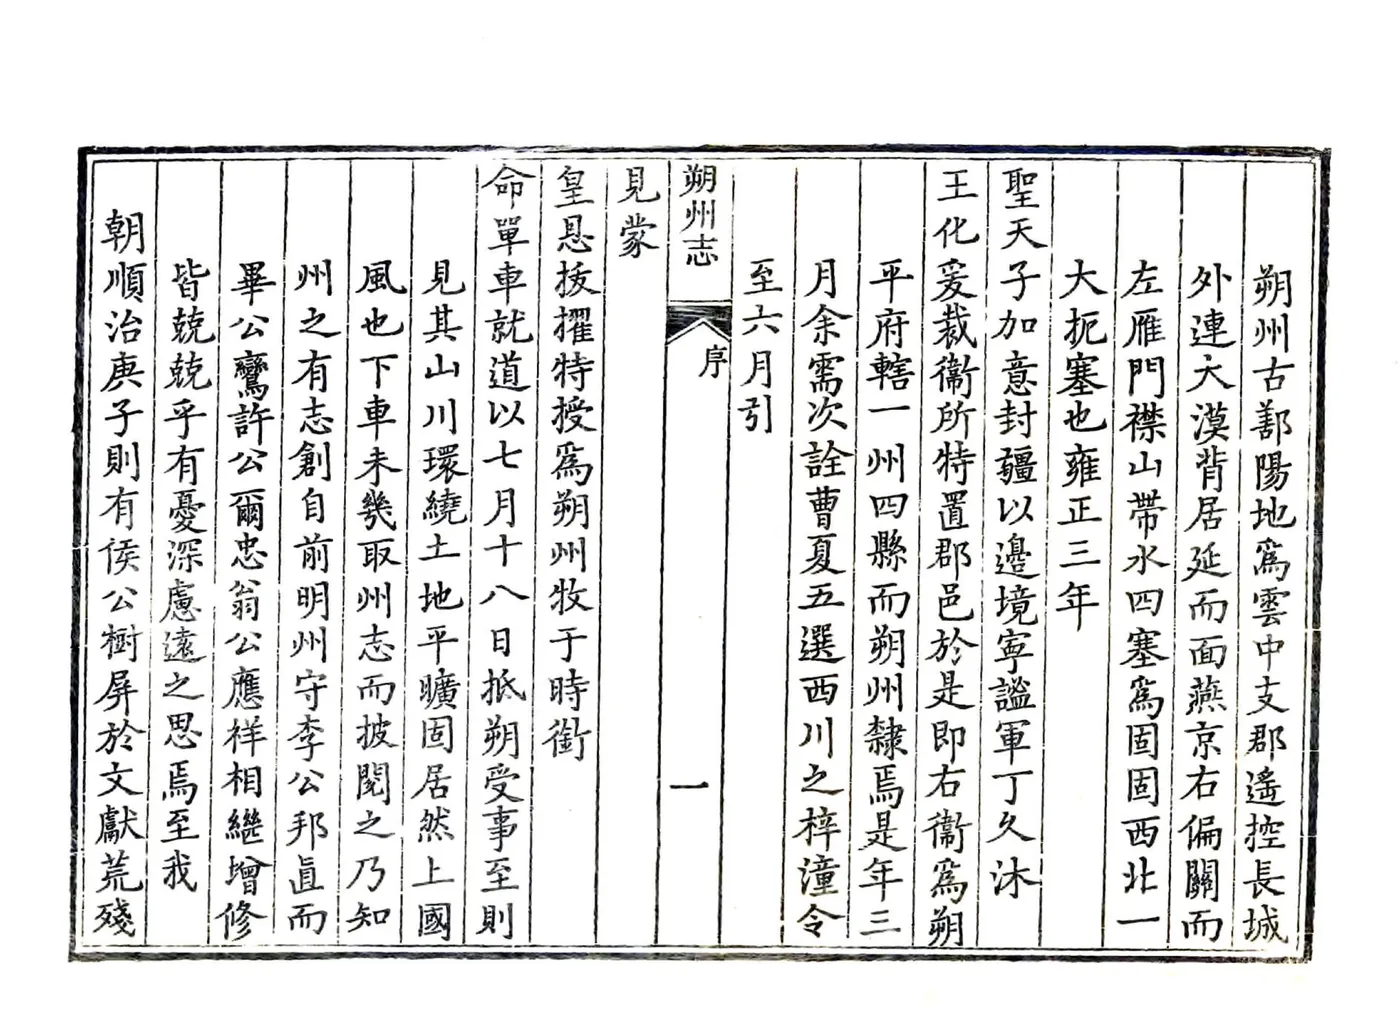 朔州古鄯陽地爲雲中支郡遙控長城
外連大漠背居延而面燕京右偏關而
左雁門襟山帶水四塞爲固固西北一
大扼塞也雍正三年
聖天子加意封疆以邊境寧謐軍丁久沐
王化爰裁衞所特置郡邑於是即右衞爲朔
平府轄一州四縣而朔州隸焉是年三
月余需次詮曹夏五選西川之梓潼令
至六月引
朔州志
序
一
見蒙
皇恩拔擢特授爲朔州牧于時銜
命單車就道以七月十八日抵朔受事至則
見其山川環繞土地平曠固居然上國
風也下車未幾取州志而披閱之乃知
州之有志創自前明州守李公邦直而
畢公鸞許公爾忠翁公應祥相繼增修
皆兢兢乎有憂深慮遠之思焉至我
朝順治庚子則有侯公樹屏於文獻荒殘